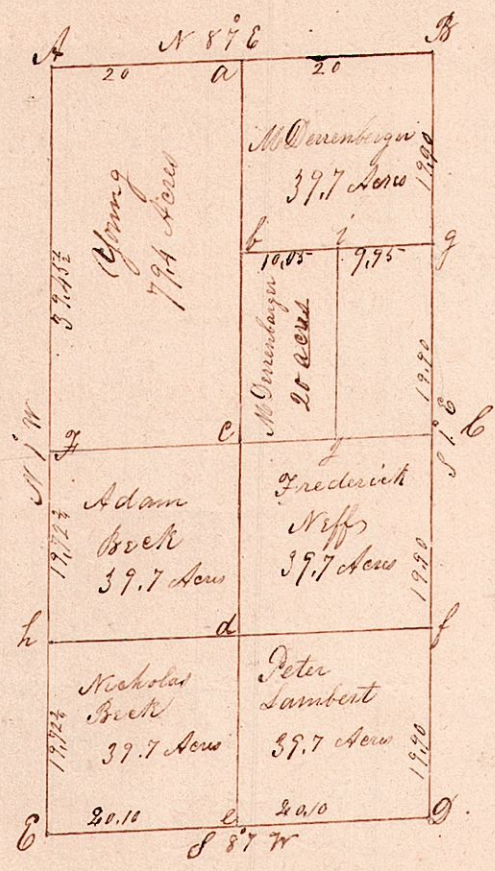 A N 87° E B
20 a 20
McDerrenberger
39.7 Acres
19,90
Young
79,4 Acres
39,45½
b i g
10,05 9,95
McDerrenbarger
20 acres
19,90
N 1° W
S 1° E
F c y C
Adam
Beck
39.7 Acres
19,72½
Frederick
Neff
39.7 Acres
19,90
h d f
Nicholas
Beck
39.7 Acres
19,72½
Peter
Lambert
39,7 Acres
19,90
20.10 20,10
E e D
S 87° W